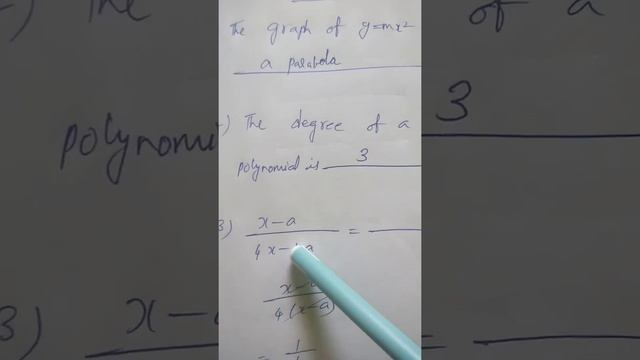 The graph of y=mx²
a parabola
) The degree of a
polynomial is 3
3) x-a / 4x-4a =
x-a / 4(x-a)
= 1